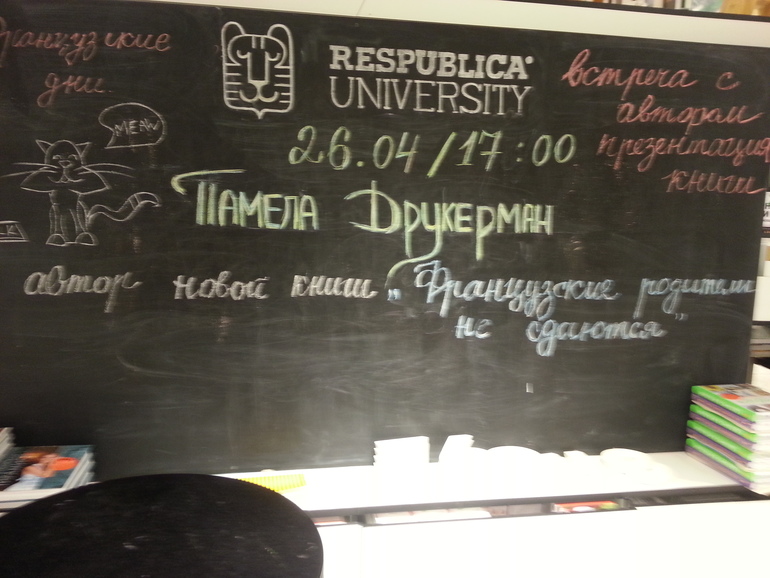 Французские
дни.
MEAW
RESPUBLICA
UNIVERSITY
встреча с
автором
презентация
книги
26.04/17:00
ПАМЕЛА ДРУКЕРМАН
автор новой книги „Французские родители
не сдаются"